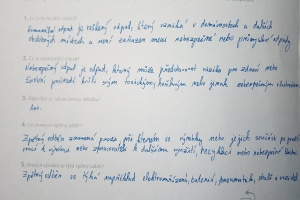 1. Co je komunální odpad?
Komunální odpad je veškerý odpad, který vzniká v domácnostech a dalších
obdobných místech a není zařazen mezi nebezpečné nebo průmyslové odpady
Nebezpečný odpad je odpad, který může představovat riziko pro zdraví nebo
životní prostředí kvůli svým toxickým, hořlavým nebo jinak nebezpečným vlastnostem
Ano.
Zpětný odběr znamená proces, při kterém se výrobky nebo jejich součásti po použití
vrací k výrobci nebo zpracovateli k dalšímu využití, recyklaci nebo
5.
Zpětný odběr se týká například elektrozařízení, baterií, pneumatik,